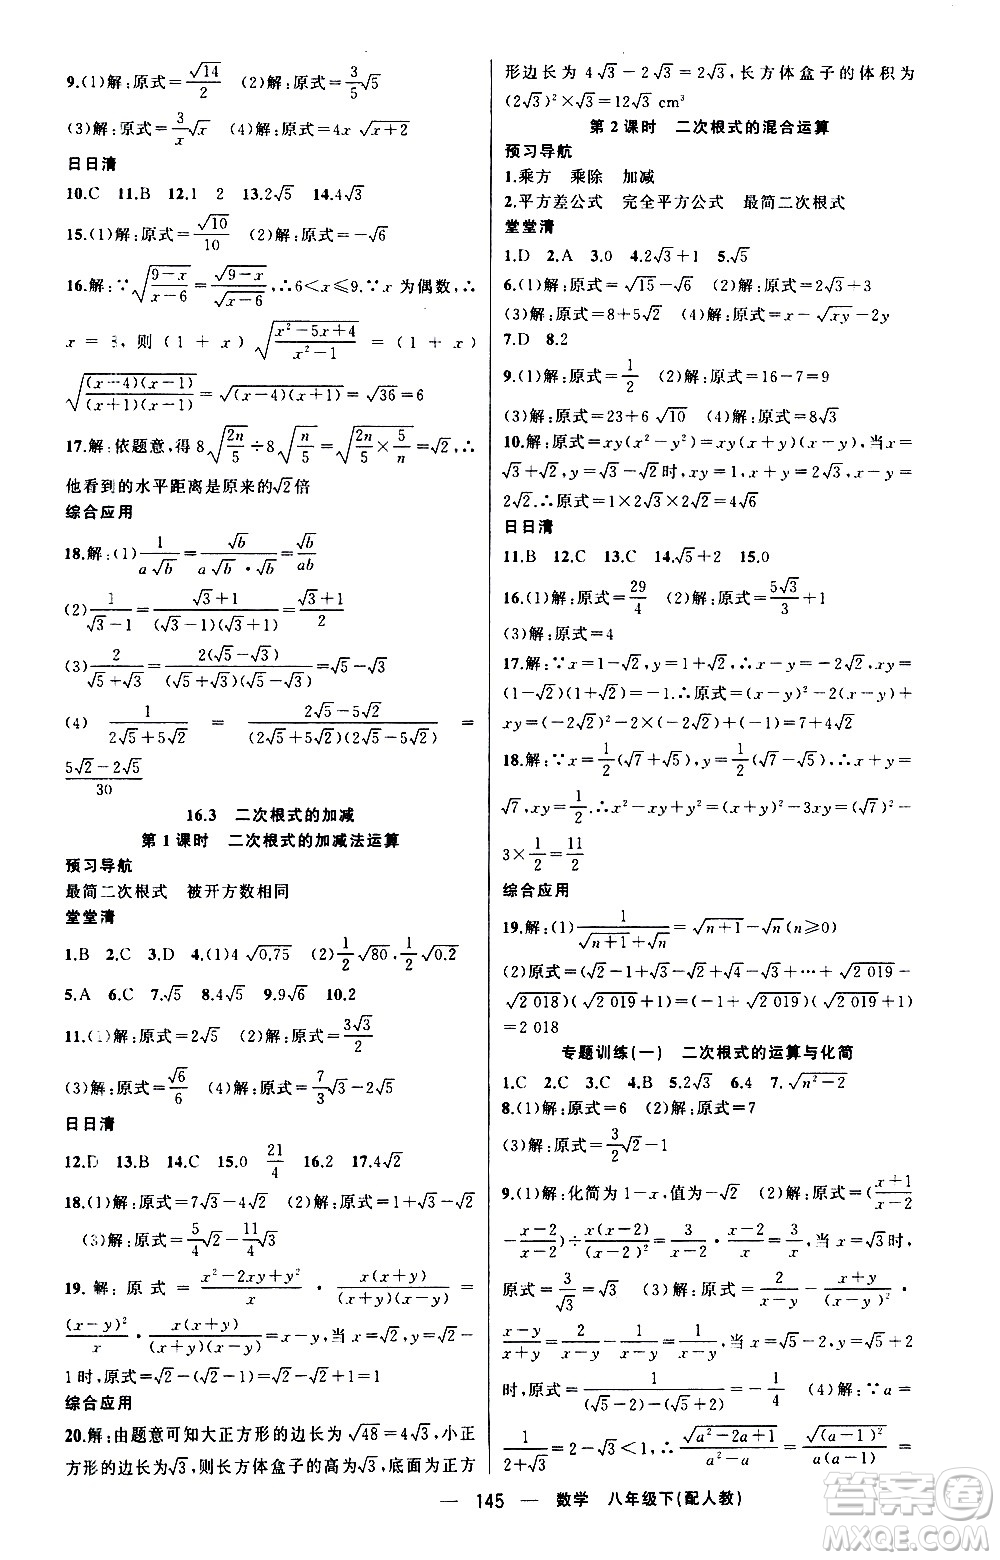 9.(1)解:原式=√14/2 (2)解:原式=3/5√5
(3)解:原式=3/x√x (4)解:原式=4x√(x+2)
日日清
10.C 11.B 12.1 2 13.2√5 14.4√3
15.(1)解:原式=√10/10 (2)解:原式=-√6
16.解:∵√((9-x)/(x-6))=√(9-x)/√(x-6),∴6<x≤9.∵x 为偶数,∴
x=8,则(1+x)√((x²-5x+4)/(x²-1))=(1+x)
√((x-4)(x-1)/((x+1)(x-1)))=√((x-4)(x+1))=√36=6
17.解:依题意,得8√(2n/5)÷8√(n/5)=√(2n/5×5/n)=√2,∴
他看到的水平距离是原来的√2倍
综合应用
18.解:(1)1/(a√b)=√b/(a√b·√b)=√b/(ab)
(2)1/(√3-1)=(√3+1)/((√3-1)(√3+1))=(√3+1)/2
(3)2/(√5+√3)=2(√5-√3)/((√5+√3)(√5-√3))=√5-√3
(4)1/(2√5+5√2)=(2√5-5√2)/((2√5+5√2)(2√5-5√2))=
(5√2-2√5)/30
16.3 二次根式的加减
第1课时 二次根式的加减法运算
预习导航
最简二次根式 被开方数相同
堂堂清
1.B 2.C 3.D 4.(1)4√0.75 (2)1/2√80,1/2√0.2
5.A 6.C 7.√5 8.4√5 9.9√5 10.2
11.(1)解:原式=2√5 (2)解:原式=3√3/2
(3)解:原式=√6/6 (4)解:原式=7/3√3-2√5
日日清
12.D 13.B 14.C 15.0 21/4 16.2 17.4√2
18.(1)解:原式=7√3-4√2 (2)解:原式=1+√3-√2
(3)解:原式=5/4√2-11/4√3
19.解:原式=(x²-2xy+y²)/x·x(x+y)/((x+y)(x-y))=
(x-y)²/x·x(x+y)/((x+y)(x-y))=x-y,当 x=√2,y=√2-
1时,原式=√2-(√2-1)=√2-√2+1=1
综合应用
20.解:由题意可知大正方形的边长为√48=4√3,小正
方形的边长为√3,则长方体盒子的高为√3,底面正方
形边长为4√3-2√3=2√3,长方体盒子的体积为
(2√3)²×√3=12√3 cm³
第2课时 二次根式的混合运算
预习导航
1.乘方 乘除 加减
2.平方差公式 完全平方公式 最简二次根式
堂堂清
1.D 2.A 3.0 4.2√3+1 5.√5
6.(1)解:原式=√15-√6 (2)解:原式=2√3+3
(3)解:原式=8+5√2 (4)解:原式=x-√xy-2y
7.D 8.2
9.(1)解:原式=1/2 (2)解:原式=16-7=9
(3)解:原式=23+6√10 (4)解:原式=8√3
10.解:原式=xy(x²-y²)=xy(x+y)(x-y),当x=
√3+√2,y=√3-√2时,xy=1,x+y=2√3,x-y=
2√2.∴原式=1×2√3×2√2=4√6
日日清
11.B 12.C 13.C 14.√5+2 15.0
16.(1)解:原式=29/4 (2)解:原式=5√3/3+1
(3)解:原式=4
17.解:∵x=1-√2,y=1+√2,∴x-y=-2√2,xy=
(1-√2)(1+√2)=-1.∴原式=(x-y)²-2(x-y)+
xy=(-2√2)²-2×(-2√2)+(-1)=7+4√2
18.解:∵x=1/2(√7+√5),y=1/2(√7-√5),∴x+y=
√7,xy=1/2.∴x²-xy+y²=(x+y)²-3xy=(√7)²-
3×1/2=11/2
综合应用
19.解:(1)1/(√(n+1)+√n)=√(n+1)-√n(n≥0)
(2)原式=(√2-1+√3-√2+√4-√3+…+√2 019-
√2 018)(√2 019+1)=(-1+√2 019)(√2 019+1)
=2 018
专题训练(一) 二次根式的运算与化简
1.C 2.C 3.A 4.B 5.2√3 6.4 7.√(n²-2)
8.(1)解:原式=6 (2)解:原式=7
(3)解:原式=3/2√2-1
9.(1)解:化简为1-x,值为-√2 (2)解:原式=((x+1)/(x-2)
-(x-2)/(x-2))÷x(x-2)/(x-2)²=3/(x-2)·(x-2)/x=3/x,当x=√3时,
原式=3/√3=√3 (3)解:原式=2/(x-y)-(x+y)/(x-y)²·
(x-y)/(x+y)=2/(x-y)-1/(x-y)=1/(x-y),当x=√5-2,y=√5+2
时,原式=1/(√5-2-(√5+2))=-1/4 (4)解:∵a=
1/(2+√3)=2-√3<1,∴√(a²-2a+1)/(a²-a)=√(a-1)²/(a(a-1))=
— 145 — 数学 八年级下(配人教)
答案圈
MXQE.COM